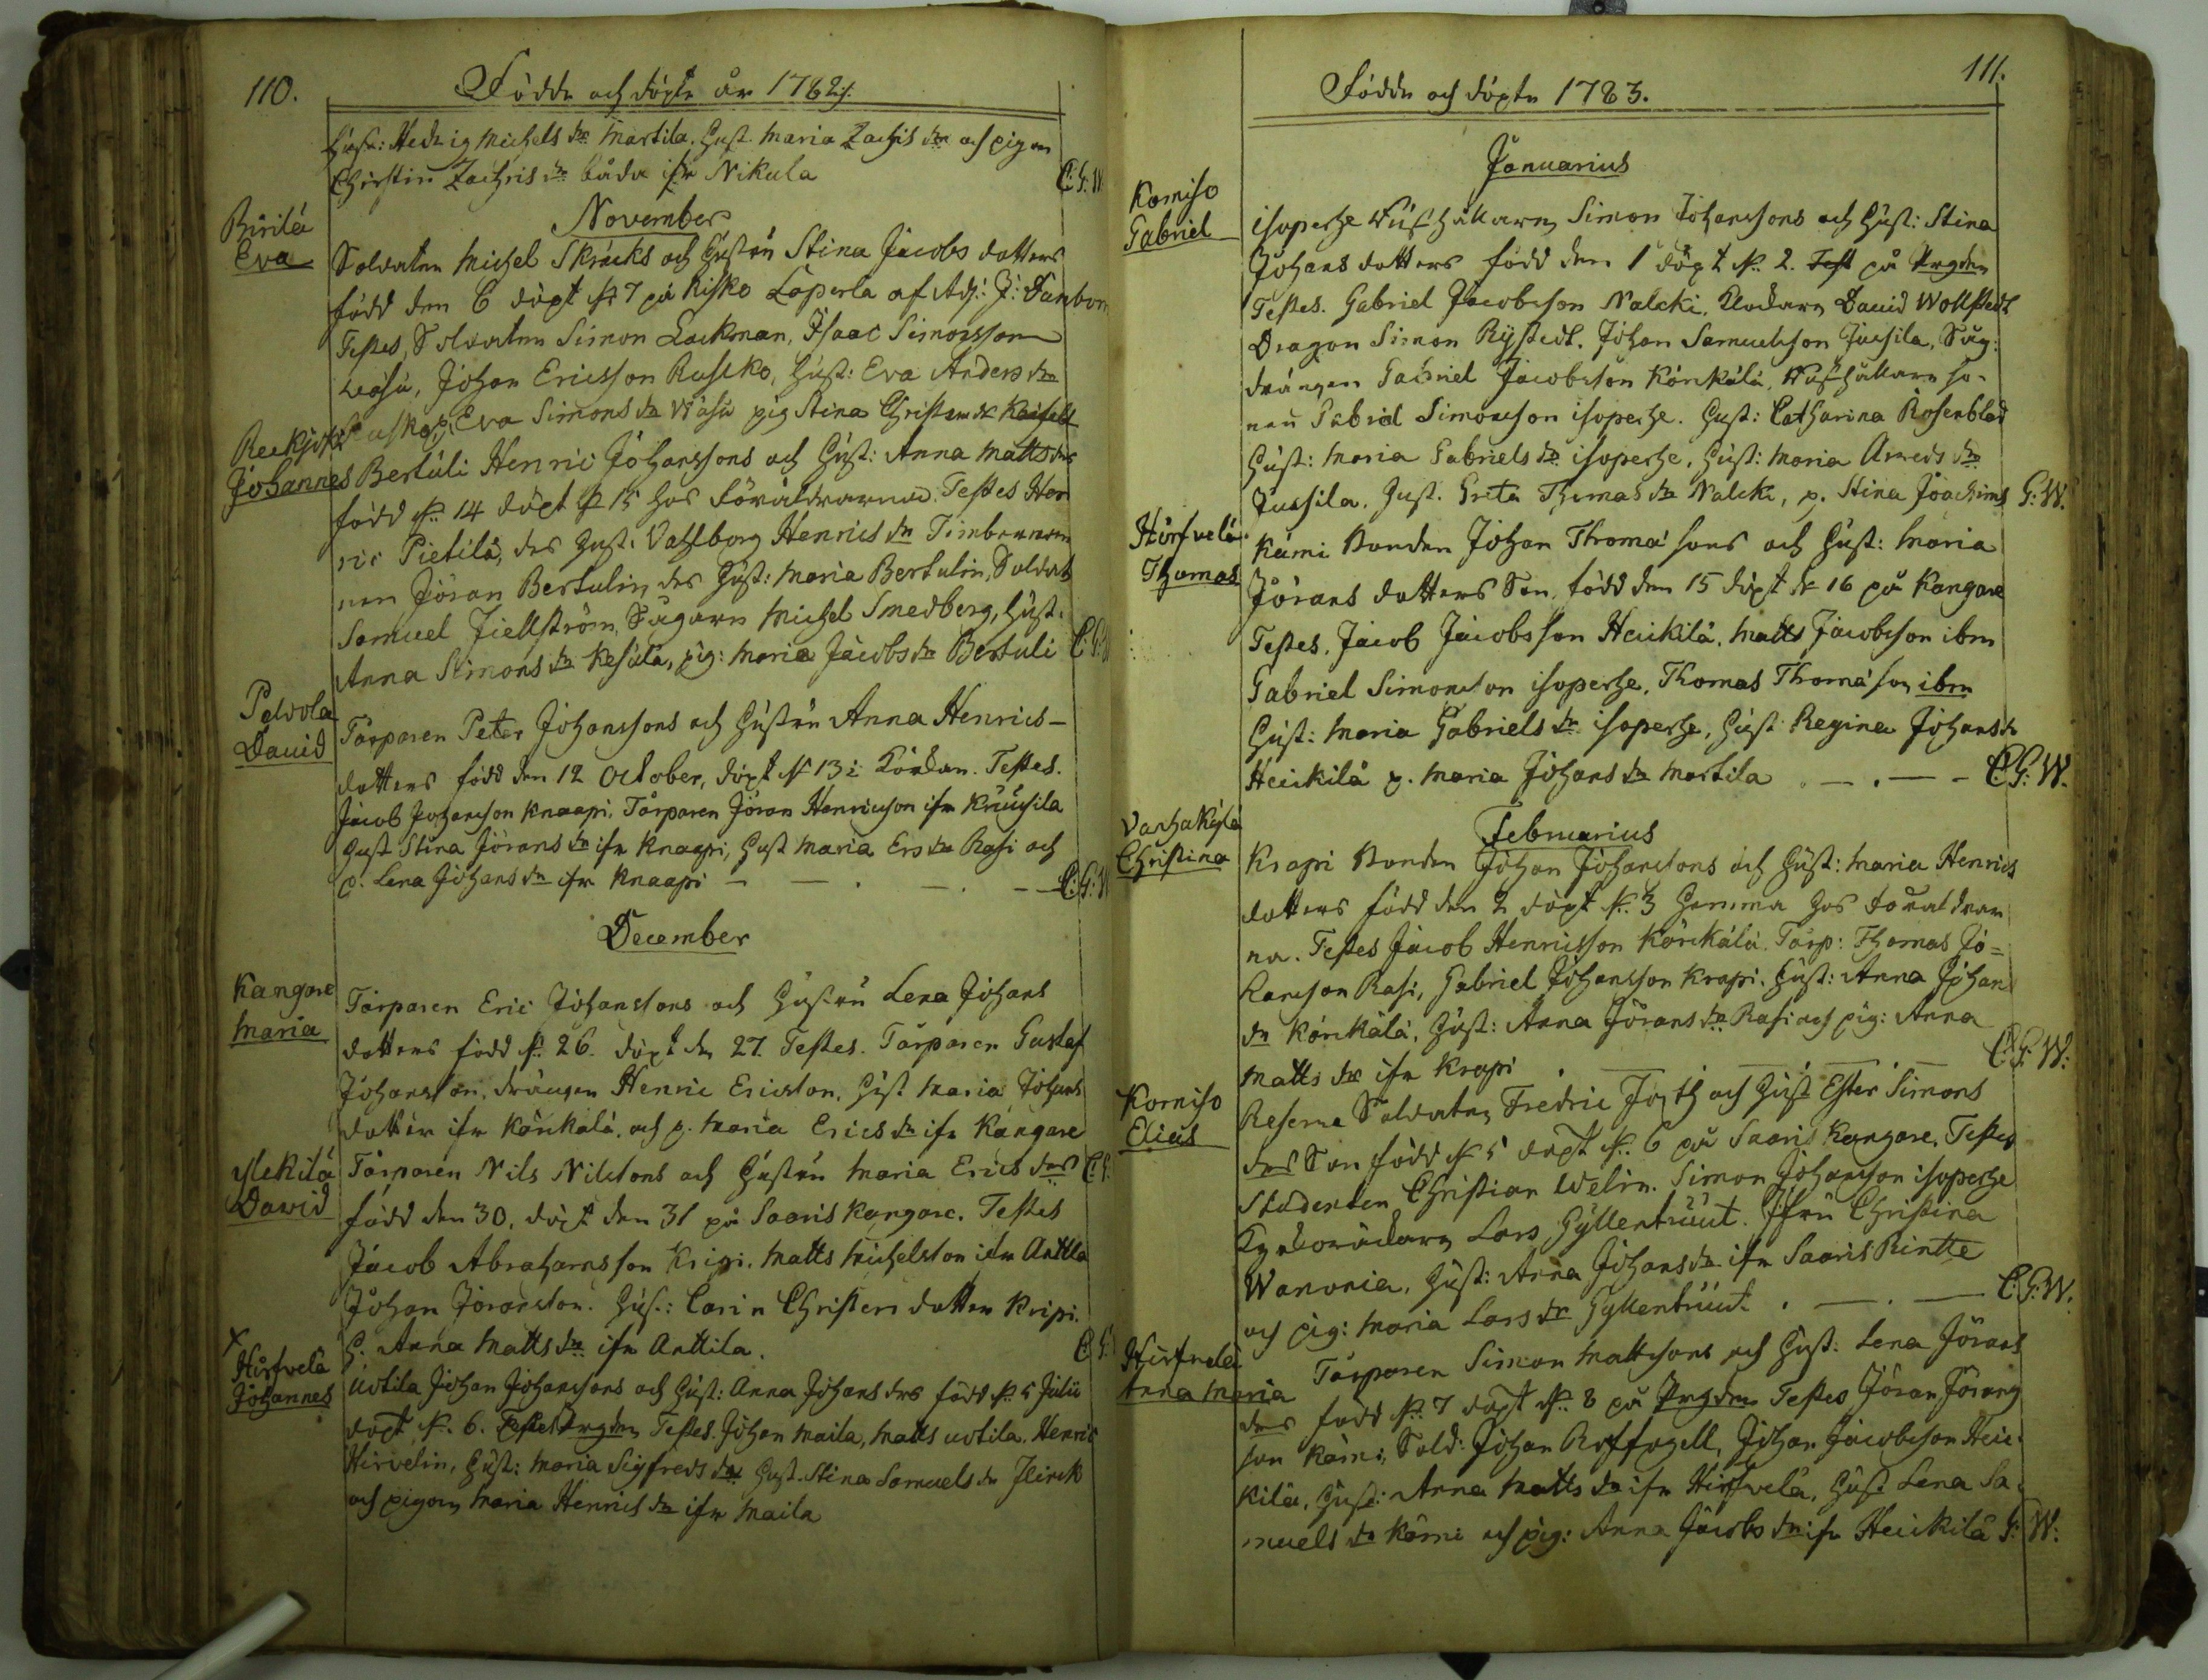 110.
Födde och döpte år 1782.
Hust: Hedvig Michels dr Martila. Hust. Maria Zachris dr och pigan
Christin Zachris dr båda ifr Nikula C:G:W
November
Pirilä
Eva
Soldaten Michel Skräcks och Hustru Stina Jacobs dotters
född den 6 döpt d: 7 på Kisko Laperla af Adj: J: Danbom
Testes, Soldaten Simon Lackman, Isaac Simonsson
Wäsu, Johan Ericsson Rusko, Hust: Eva Anders dr
Rusko, p. Eva Simons dr Wäsu pig Stina Christers dr
Johannes
Bertuli Henric Johanssons och Hust: Anna Matts drs
född d: 14 döpt d 15 hos Föräldrarna. Testes Hen
ric Pietilä, des Hust: Valborg Henrics dr Timberman
nen Jöran Bertulin, des Hust: Maria Bertulin, Soldat
Samuel Fiellström, Sågaren Michel Smedberg, Hust.
Anna Simons dr Kesälä, pig: Maria Jacobs dr Bertuli C:G:
Palvola
David
Torparen Peter Johanssons och Hustru Anna Henrics-
dotters född den 12 October, döpt d 13 i Kyrkan. Testes.
Jacob Johansson Knaapi, Torparen Jöran Henricsson ifr Kruusila
Hust Stina Jörans dr ifr Knaapi, Hust Maria Ers dr Rasi och
p. Lena Johans dr ifr Knaapi - - . - . - - C:G:W
December
Kangare
Maria
Torparen Eric Johanssons och Hustru Lena Johans
dotters född d: 26. döpt den 27. Testes. Torparen Gustaf
Johansson, drängen Henric Ericsson, Hust Maria Johans
dotter ifr Körckälä, och p. Maria Erics dr ifr Kangare
Ylekilä
David
Torparen Nils Nilssons och Hustru Maria Erics drs C:G:
född den 30, döpt den 31 på Saaris Kangare. Testes
Jacob Abrahamsson Kripi. Matts Michelsson ifr Anttila
Johan Jöransson. Hust: Carin Christers dotter Kripi.
H. Anna Matts dr ifr Anttila. C:G:
x
Hirfvelä
Johannes
Uotila Johan Johanssons och Hust: Anna Johans drs född d: 5 Julii
döpt d. 6. Testes. Johan Maila, Matts Uotila, Henric
Hirvelin, Hust: Maria Sigfreds dr Hust. Stina Samuels dr
och pigan Maria Henrics dr ifr Maila
111.
Födde och döpte 1783.
Januarius
Korniso
Gabriel
Isoperhe Rusthållaren Simon Johanssons och Hust: Stina
Johans dotters född den 1 döpt d: 2. Test på Prgdn
Testes. Gabriel Jacobsson Nalcki. Klockaren David Wollstedt
Dragon Simon Rystedt. Johan Samuelsson Jussila, Såg:
drängen Gabriel Jacobsson Körkälä, Rusthållare so-
nen Gabriel Simonsson isoperhe. Hust: Catharina Rosenblad
Hust: Maria Gabriels dr isoperhe, Hust: Maria dr
Jussila. Hust. Greta Thomas dr Nalcki, p. Stina Joachims G:W.
Hirfvelä
Thomas
Kärni Bonden Johan Thomæsons och Hust: Maria
Jörans dotters Son, född den 15 döpt d 16 på Kangare
Testes, Jacob Jacobsson Heickilä. Matts Jacobsson ibm
Gabriel Simonsson isoperhe, Thomas Thomæson ibm
Hust: Maria Gabriels dr isoperhe, Hust Regina Johans dr
Heickilä p. Maria Johans dr Martila . - . - - C:G:W.
Februarius
Vachakylä
Christina
Krapi Bonden Johan Johanssons och Hust: Maria Henrics
dotters född den 2 döpt d: 3 hemma hos föräldrar
na. Testes Jacob Henricsson Körckälä. Torp: Thomas Jö=
ransson Rasi, Gabriel Johansson Krapi. Hust: Anna Johans
dr Körckälä, Hust: Anna Jörans dr Rasi och pig: Anna
Matts dr ifr Krapi . - . - C:G:W:
Korniso
Elias
Reserve Soldaten Fredric och Hust Ester Simons
drs Son född d 5 döpt d: 6 på Saaris Kangare, Testes
Studenten Christian Welin. Simon Johansson isoperhe
Lars Gyllentruut. Jfru Christina
Wanonia, Hust: Anna Johans dr ifr Saaris Rintte
och pig: Maria Lars dr Gyllentruut. . - . - C:G:W.
Hirfvelä
Anna Maria
Torparen Simon Mattssons och Hust: Lena Jörans
drs född d: 7 döpt d: 8 på Prgdn Testes Jöran Jörans
son Kärni, Sold: Johan Johan Jacobsson Heic-
kilä, Hust: Anna Matts dr ifr Hirfvelä, Hust Lena Sa-
muels dr Kärni och pig: Anna Jacobs dr ifr Heickilä G: W: